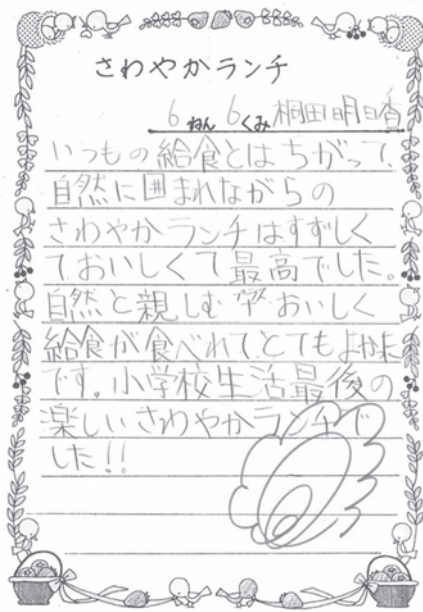 さわやかランチ
6ねん 6くみ 桐田明日香
いつもの給食とはちがって、
自然に囲まれながらの
さわやかランチはすずしく
ておいしくて最高でした。
自然と親しむ おいしく
給食が食べれてとてもよかった
です。小学校生活最後の
楽しいさわやかランチで
した!!